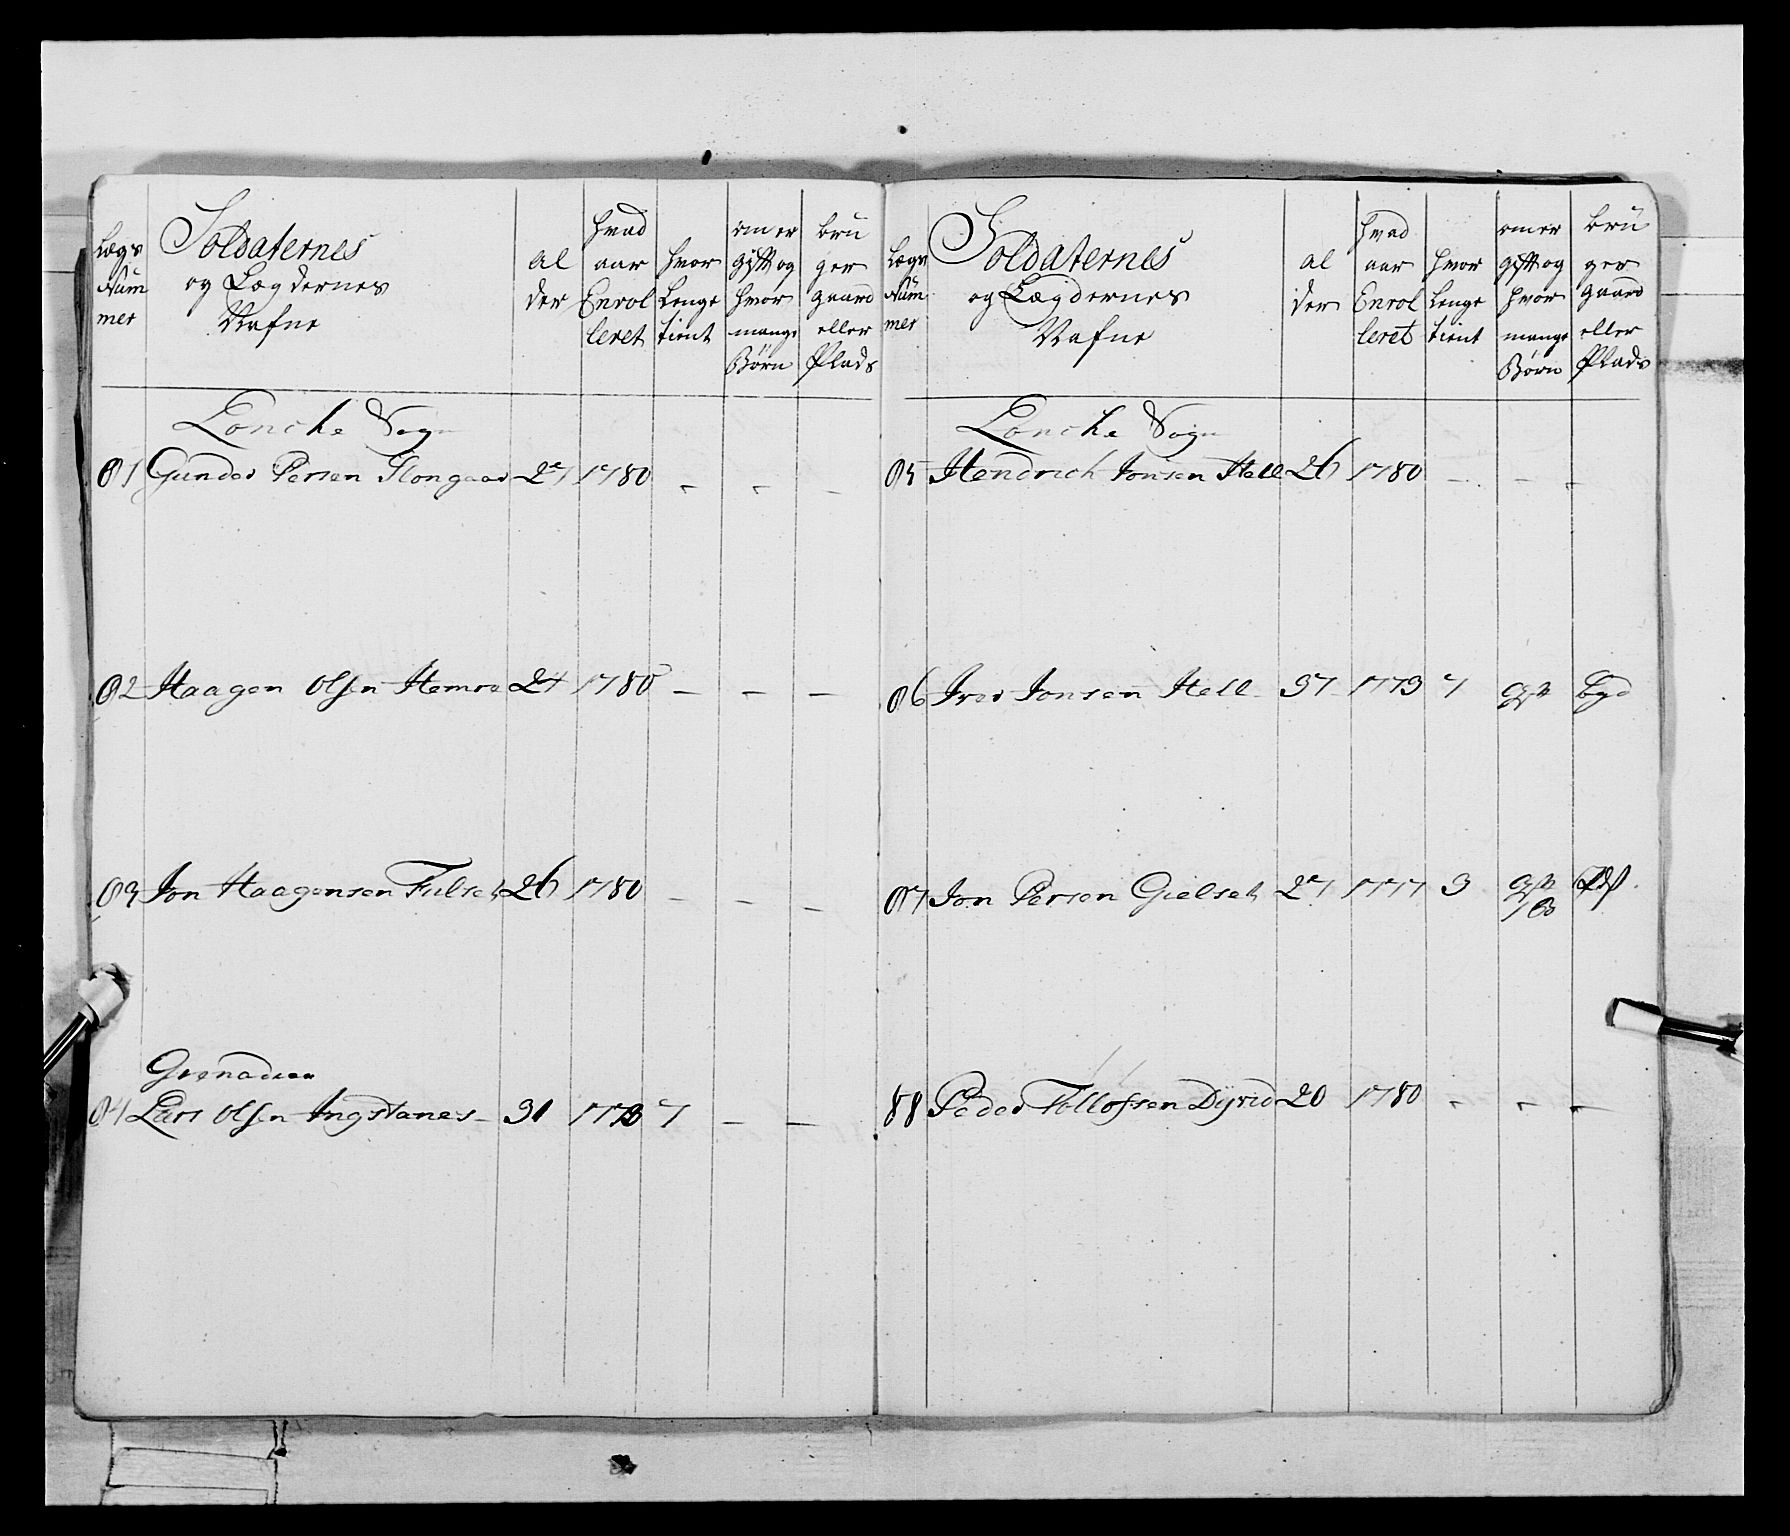 Lægs
Num
mer
Soldaternes
og Lægdernes
Nafne
al
der
hvad
aar
Enrol
leret
hvor
lenge
tient
om er
gift og
hvor
mange
Børn
bru
ger
gaard
eller
Plads
Loncke Sogn
81 Gunder Persen Slongaas 27 1780 - - -
82 Haagen Olsen Hemre 24 1780 - - -
83 Jon Haagensen Fulset 26 1780 - - -
Grenadeer
84 Lars Olsen Ingstanes - 31 1773 7 - -
Lægs
Num
mer
Soldaternes
og Lægdernes
Nafne
al
der
hvad
aar
Enrol
leret
hvor
lenge
tient
om er
gift og
hvor
mange
Børn
bru
ger
gaard
eller
Plads
Loncke Sogn
85 Hendrich Jonsen Hell 26 1780 - - -
86 Iver Jonsen Hell 37 1773 7 gift
87 Jon Persen Gielset 27 1777 3 gift
88 Peder Tollofsen Dyrid 20 1780 - - -